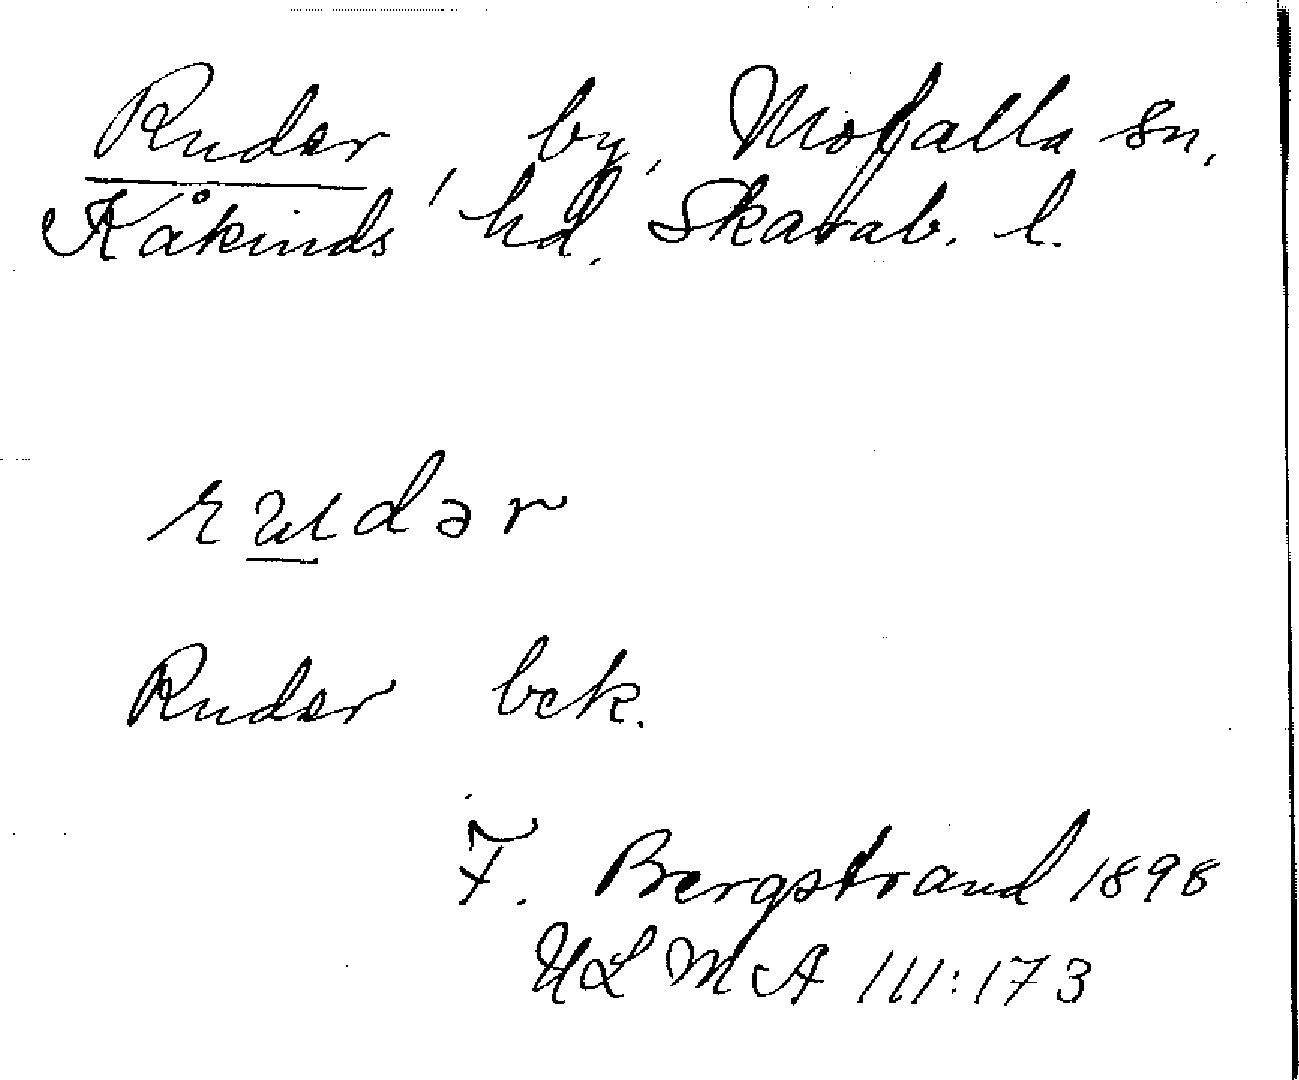 Ruder, by, Mofalla sn,
Kåkinds hd. Skarab. l.
rudər
Ruder bek.
F. Bergstrand 1898
ULMA 111:173